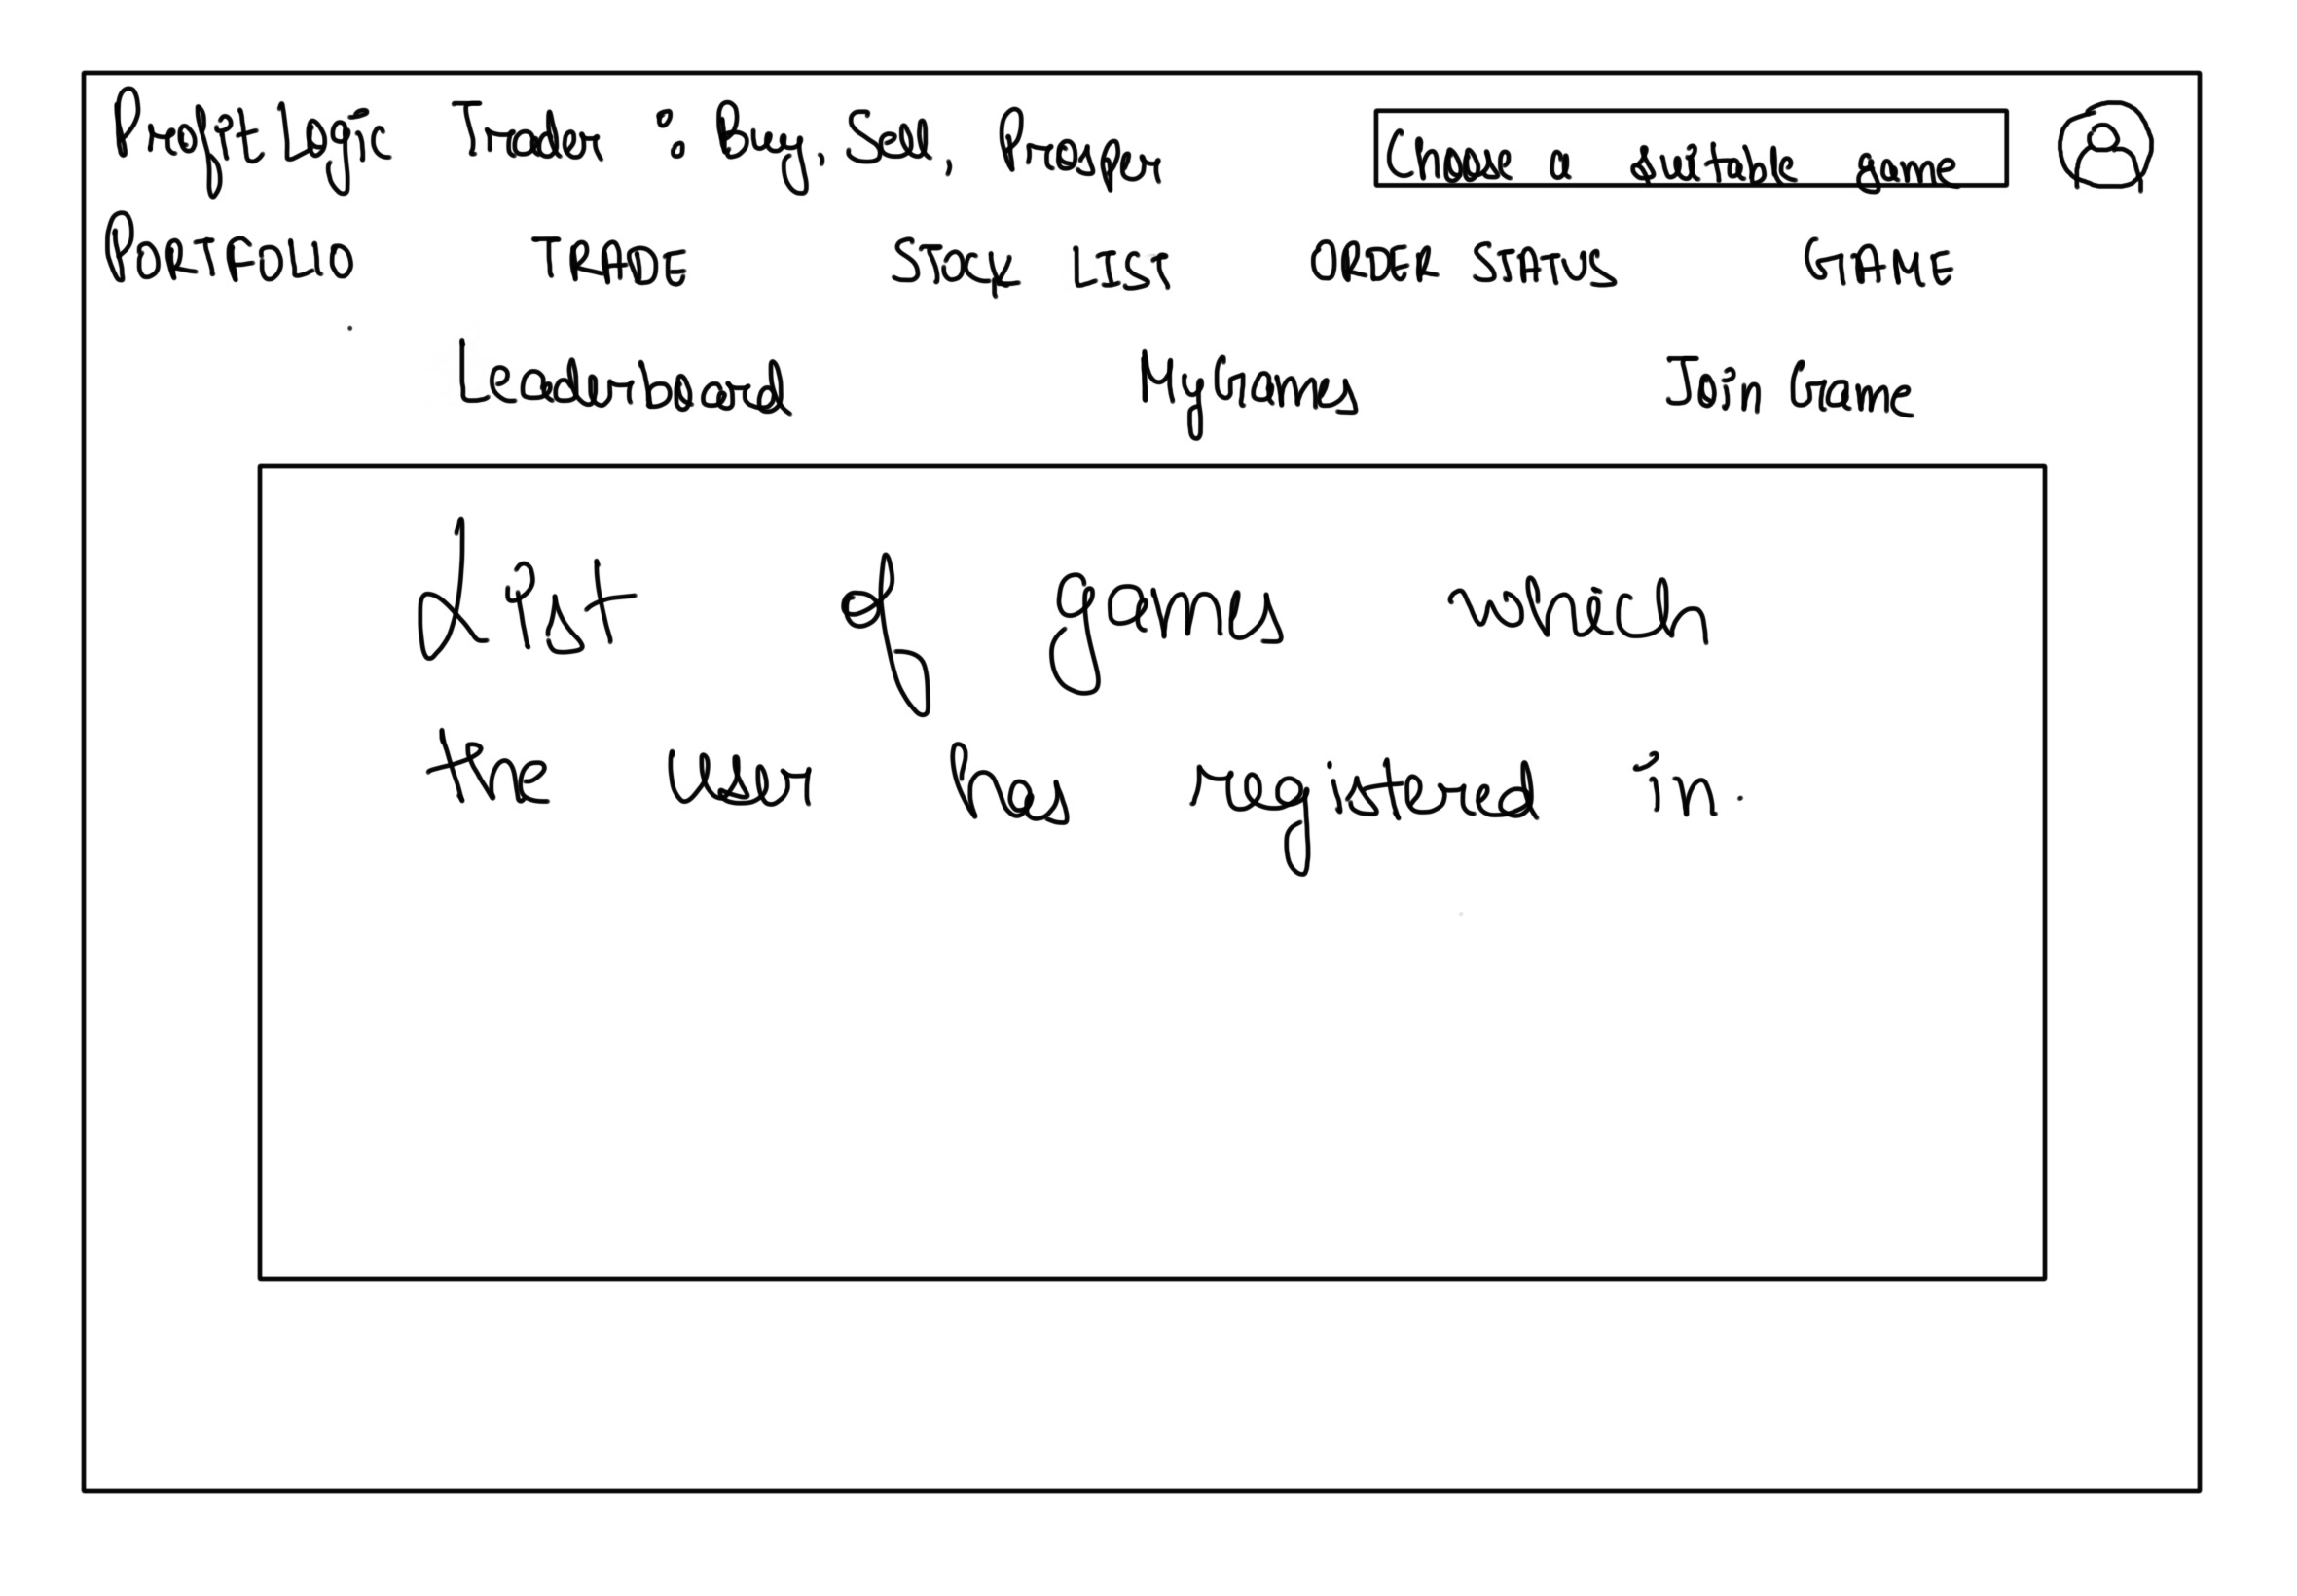 Profit Logic Trader : Buy, Sell, Prosper
Choose a suitable game
PORTFOLIO TRADE STOCK LIST ORDER STATUS GAME
Leaderboard MyGames Join Game
List of games which
the user has registered in.